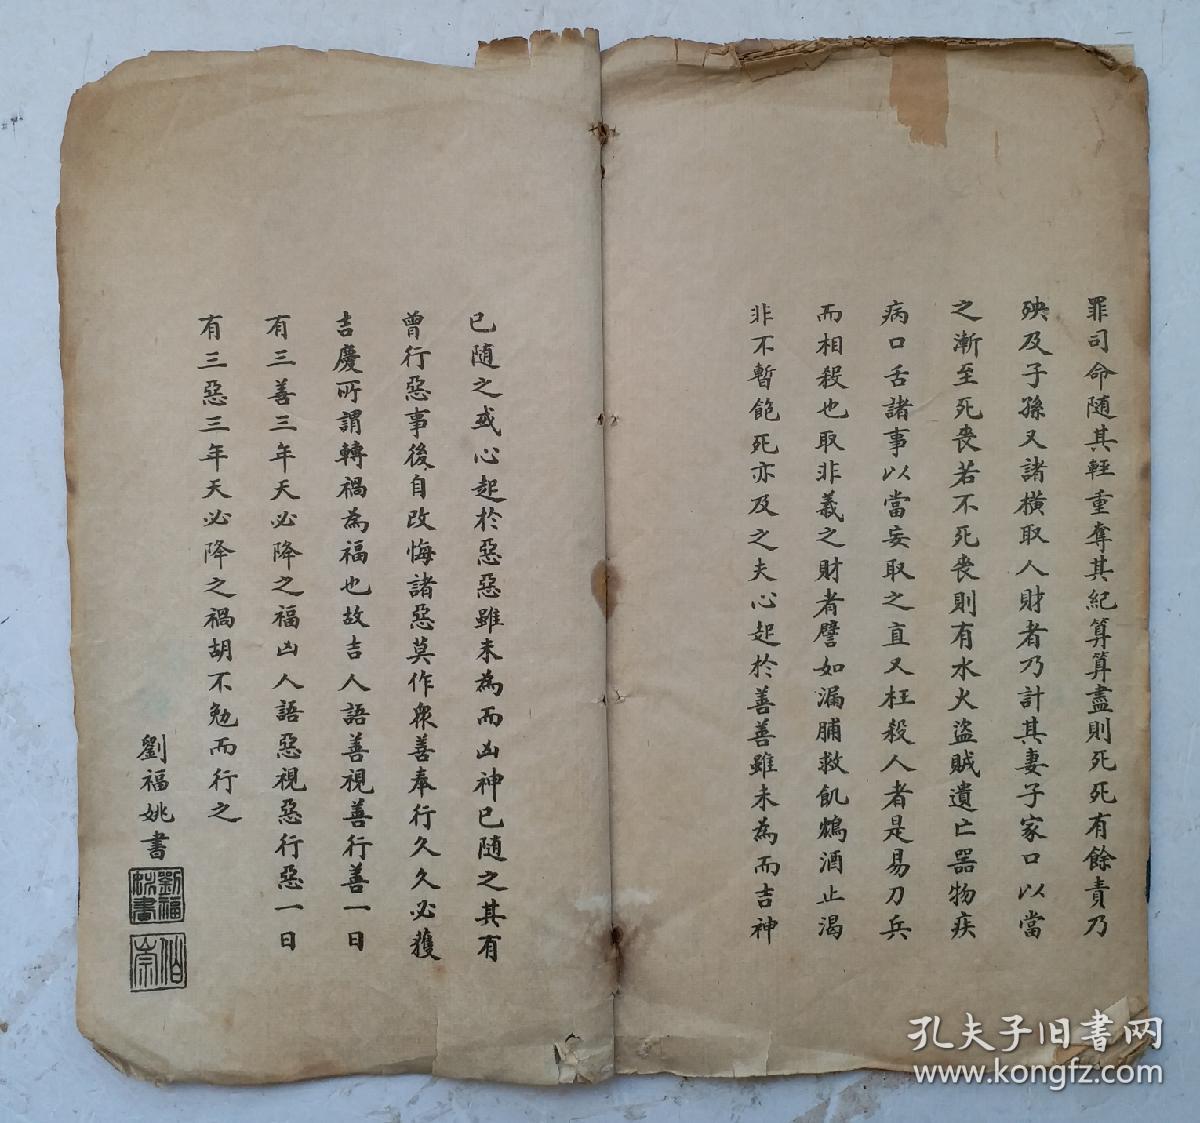 罪司命随其輕重奪其紀算算盡則死死有餘責乃
殃及子孫又諸橫取人財者乃計其妻子家口以當
之漸至死喪若不死喪則有水火盜賊遺亡器物疾
病口舌諸事以當妄取之直又枉殺人者是易刀兵
而相殺也取非義之財者譬如漏脯救飢鴆酒止渴
非不暫飽死亦及之夫心起於善善雖未為而吉神
已随之或心起於惡惡雖未為而凶神已随之其有
曾行惡事後自改悔諸惡莫作衆善奉行久久必獲
吉慶所謂轉禍為福也故吉人語善視善行善一日
有三善三年天必降之福凶人語惡視惡行惡一日
有三惡三年天必降之禍胡不勉而行之
劉福姚書
劉福姚書
伯崇
孔夫子旧书网
www.kongfz.com